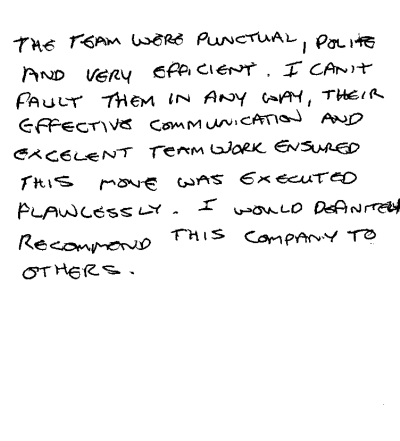 THE TEAM WERE PUNCTUAL, POLITE
AND VERY EFFICIENT. I CAN'T
FAULT THEM IN ANY WAY, THEIR
EFFECTIVE COMMUNICATION AND
EXCELENT TEAMWORK ENSURED
THIS MOVE WAS EXECUTED
FLAWLESSLY. I WOULD DEFINITELY
RECOMMEND THIS COMPANY TO
OTHERS.